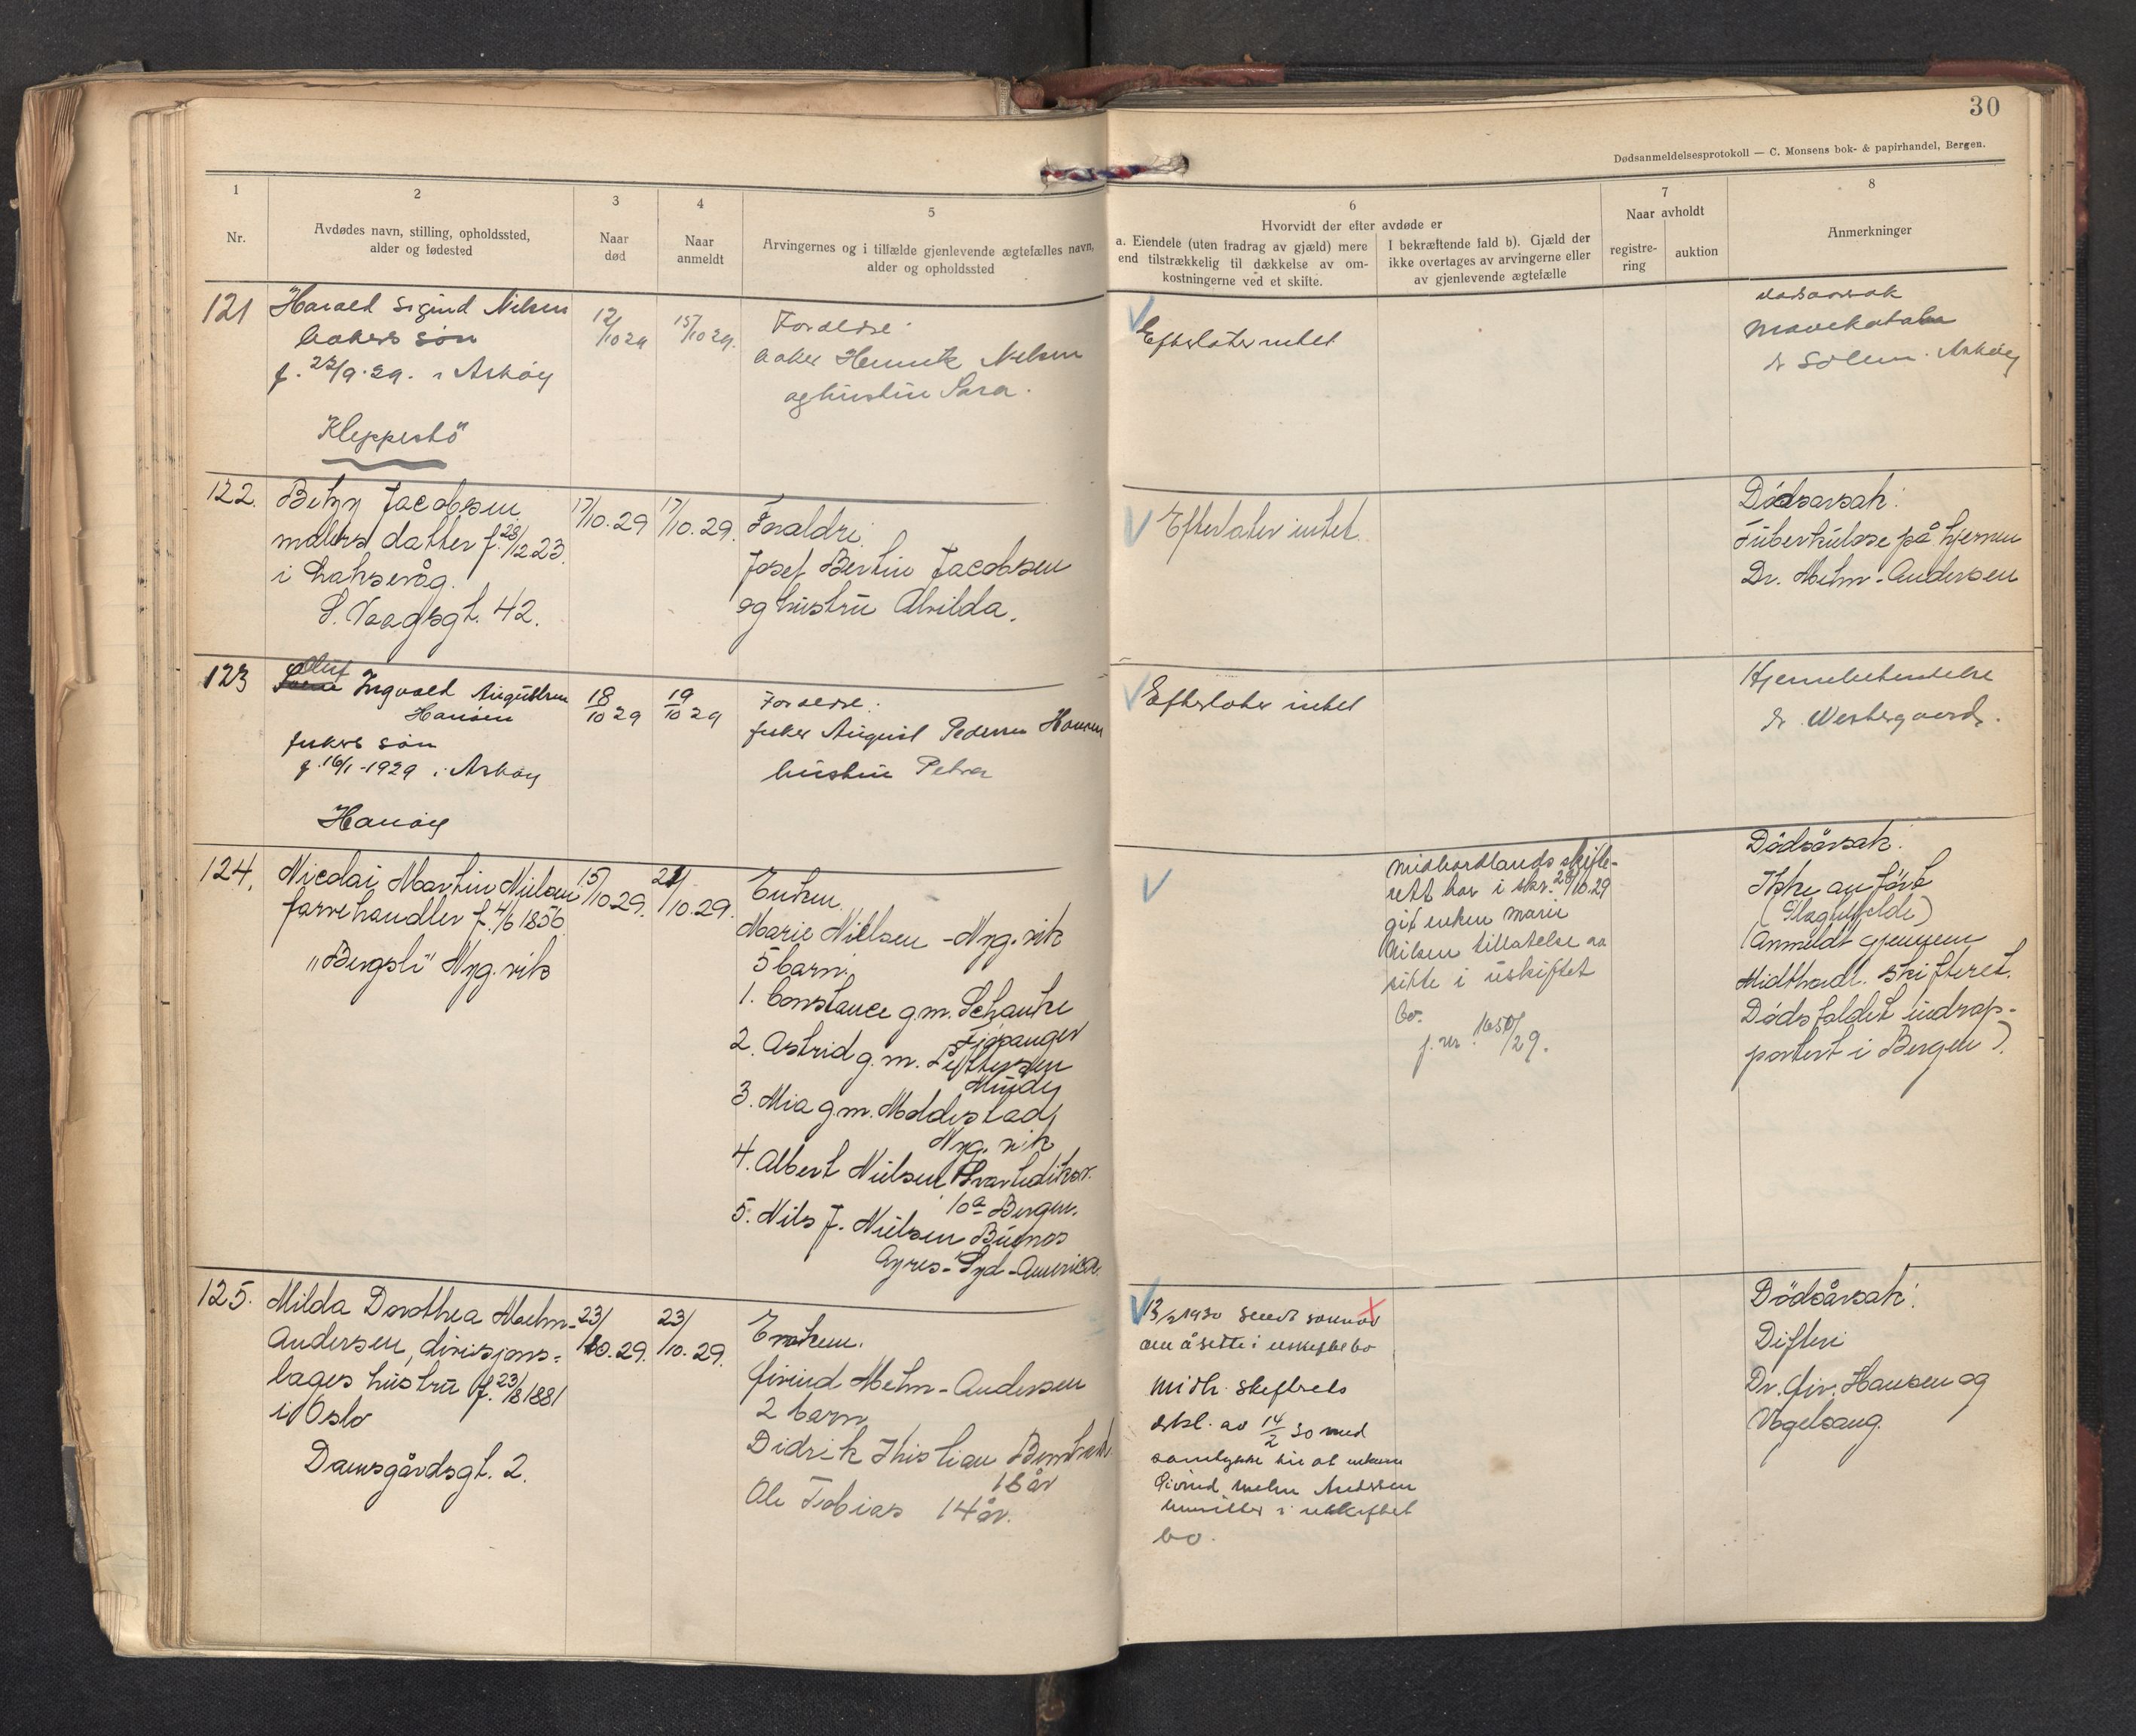 30
Dødsanmeldelsesprotokoll — C. Monsens bok- & papirhandel, Bergen.
1
Nr.
2
Avdødes navn, stilling, opholdssted,
alder og fødested
3
Naar
død
4
Naar
anmeldt
5
Arvingernes og i tilfælde gjenlevende ægtefælles navn,
alder og opholdssted
6
Hvorvidt der efter avdøde er
a. Eiendele (uten fradrag av gjæld) mere
end tilstrækkelig til dækkelse av om-
kostningerne ved et skifte.
I bekræftende fald b). Gjæld der
ikke overtages av arvingerne eller
av gjenlevende ægtefælle
7
Naar avholdt
registre-
ring
auktion
8
Anmerkninger
121
Harald Sigurd Nilsen
bakers søn
f. 22/9.29. i Askøy
Kleppestö
12/10 29
15/10 29.
Foreldre:
baker Henrik Nilsen
og hustru Sara.
Efterlater intet
dødsaarsak
Mavekatarr
dr Solem. Askøy
122.
Betzy Jacobsen
malers datter f. 28/12 23.
i Laksevåg.
S. Vaagsgt. 42.
17/10.29
17/10.29.
Foraldre.
Josef Bertin Jacobsen
og hustru Alvilda.
Efterlater intet.
Dødsarsak:
Tüberkulose på hjernen
Dr. Mehn-Andersen
123
Olluf
Ingvald Augustson
Hansen
fiskers søn
f. 16/1-1929 i Askøy
Hanöy
18/10 29
19/10 29
Foreldre:
fisker August Pedersen Hansen
hustru Petra
Efterlater intet
Hjernebetendelse
dr. Westergaard.
124.
Nicolai Martin Nielsen
farvehandler f. 4/6 1856.
"Bergsli" Nyg. vik
15/10.29.
21/10.29.
Enken.
Marie Nielsen - Nyg. vik
5 barn:
1. Constance g.m. Schanke
Fjøsanger
2. Astrid g.m. Løttersen
3. Mia g.m. Moldestad,
Nyg. vik
4. Albert Nielsen, Svartediksv.
10a Bergen.
5. Nils J. Nielsen Büenos
Ayres - Syd-America.
Midhordlands skifte-
rett har i skr. 28/10.29
git enken Marie
Nilsen tillatelse aa
sitte i uskiftet
bo.
j. nr. 1650/29.
Dødsårsak:
Ikke anført
(Slagtilfelde)
(Anmeldt gjennem
Midthordl. skifteret.
Dødsfaldet indrap-
portert i Bergen).
125.
Milda Dorothea Mehn-
Andersen, divisjons-
læges hustru f. 23/8 1881
i Oslo
Damsgårdsgt. 2.
23/10.29.
23/10.29.
Enkem.
Eivind Mehn-Andersen
2 barn
Didrik Khistian
16 år
Ole Tobias 14 år.
13/2 1930 sendt
om å sitte i uskiftet bo
Midh. skifterets
av 14/2 30 med
samtykke til at enkem
Eivind Mehn Andersen
hensitter i uskiftet
bo.
Dødsårsak:
Difteri
Dr. Eiv. Hansen og
Vogelsang.